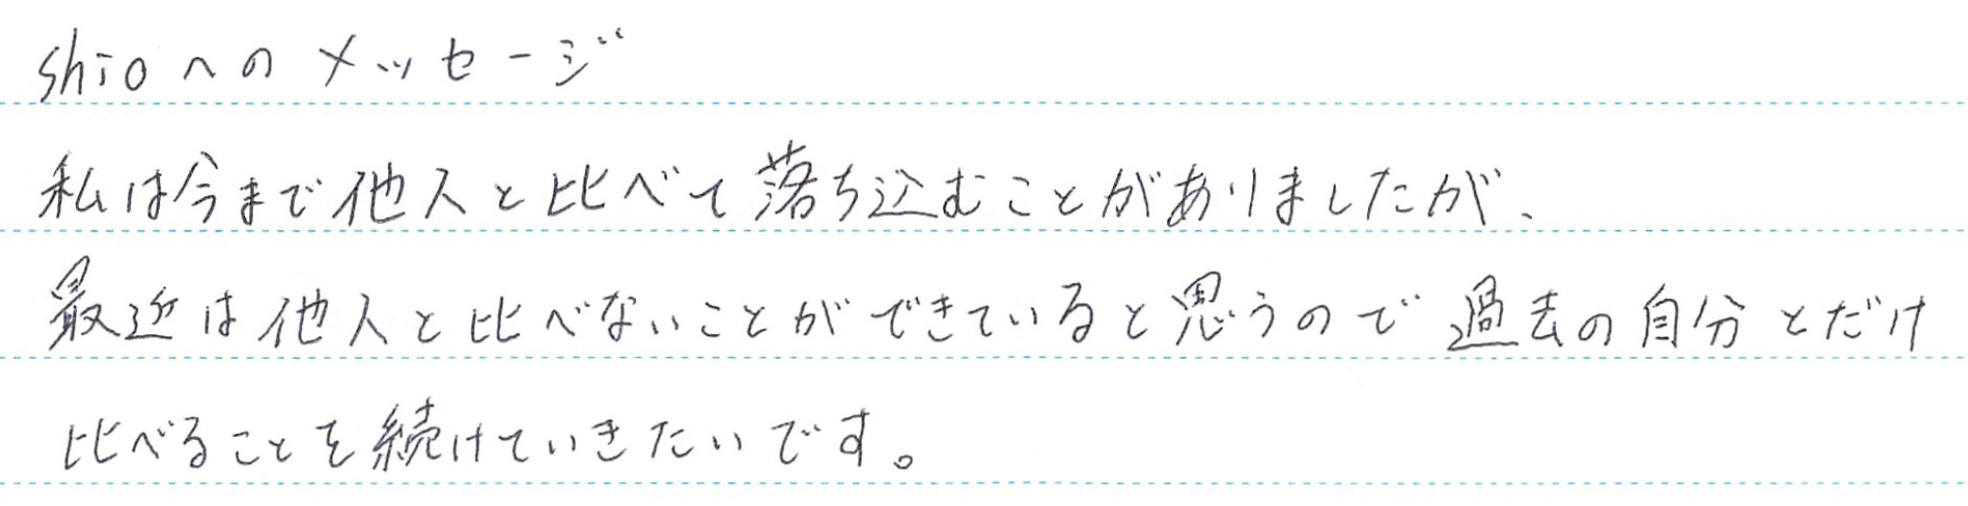 shioへのメッセージ
私は今まで他人と比べて落ち込むことがありましたが、
最近は他人と比べないことができていると思うので過去の自分とだけ
比べることを続けていきたいです。